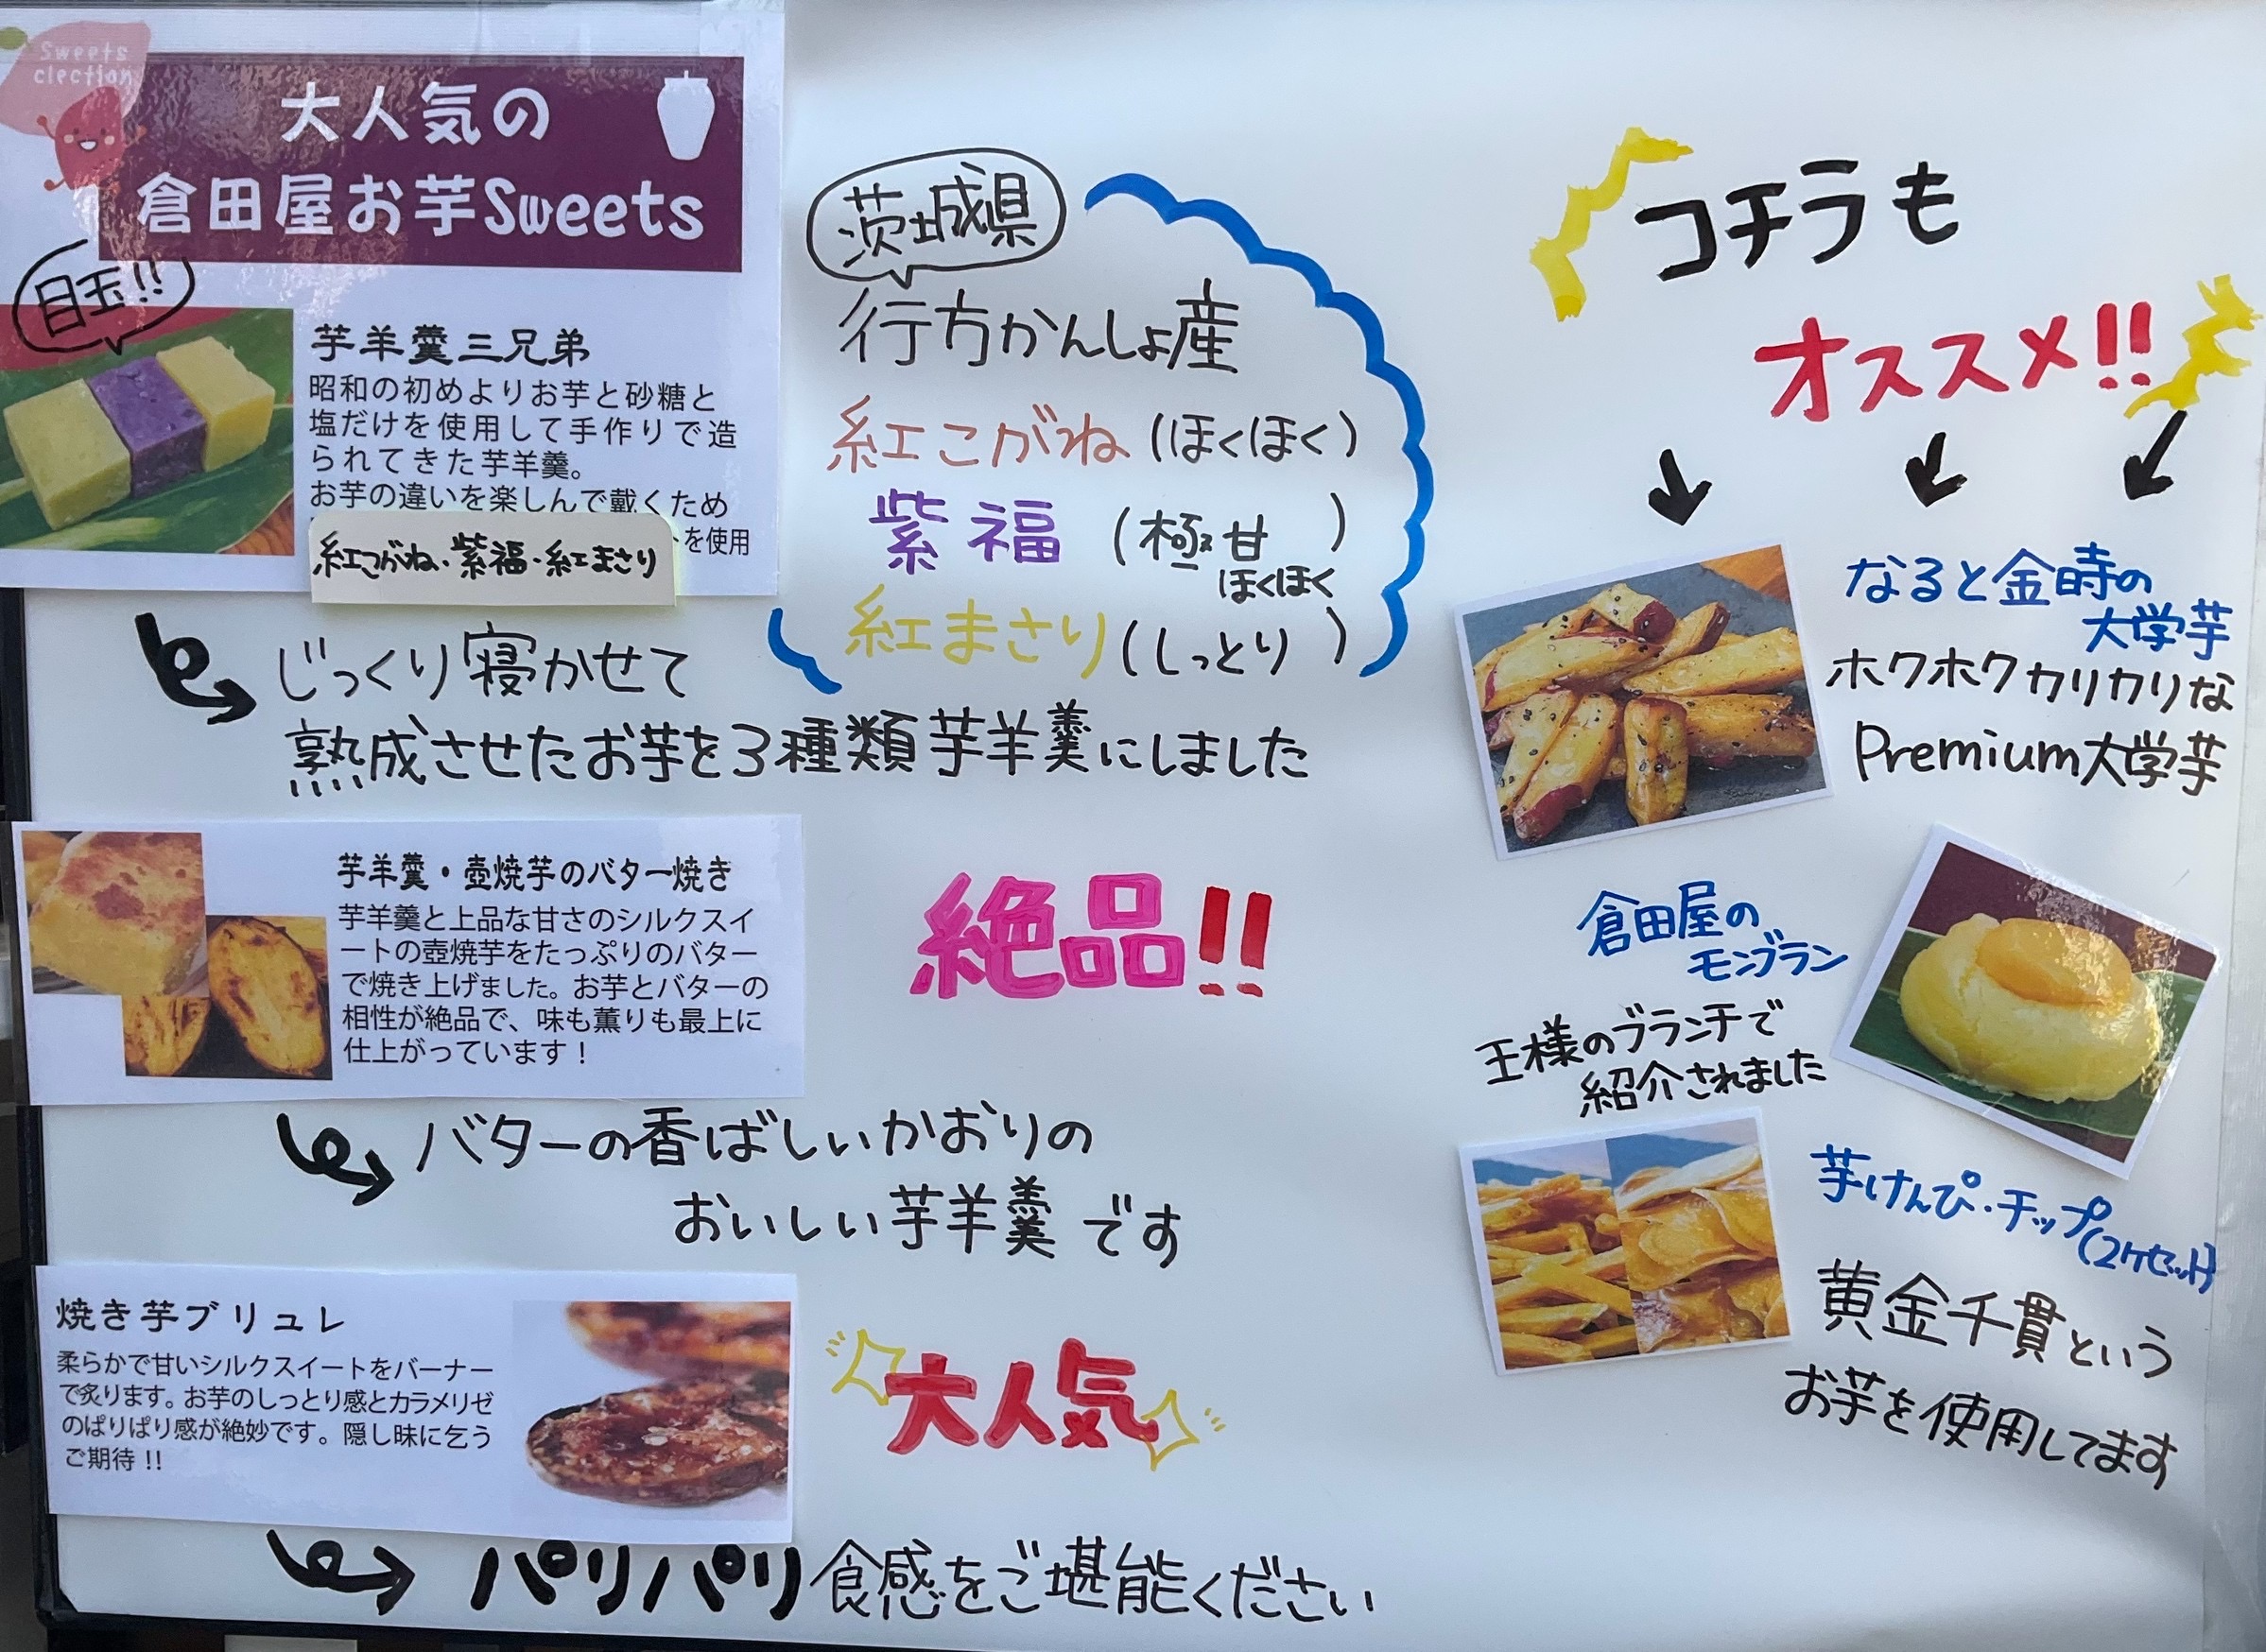 Sweets
clection
大人気の
倉田屋お芋Sweets
目玉!!
芋羊羹三兄弟
昭和の初めよりお芋と砂糖と
塩だけを使用して手作りで造
られてきた芋羊羹。
お芋の違いを楽しんで戴くため
を使用
紅こがね・紫福・紅まさり
じっくり寝かせて
熟成させたお芋を3種類芋羊羹にしました
茨城県
行方かんしょ産
紅こがね(ほくほく)
紫福(極甘
ほくほく)
紅まさり(しっとり)
芋羊羹・壺焼芋のバター焼き
芋羊羹と上品な甘さのシルクスイ
ートの壺焼芋をたっぷりのバター
で焼き上げました。お芋とバターの
相性が絶品で、味も薫りも最上に
仕上がっています！
絶品!!
バターの香ばしいかおりの
おいしい芋羊羹です
焼き芋ブリュレ
柔らかで甘いシルクスイートをバーナー
で炙ります。お芋のしっとり感とカラメリゼ
のぱりぱり感が絶妙です。隠し味に乞う
ご期待!!
大人気
パリパリ食感をご堪能ください
コチラも
オススメ!!
なると金時の
大学芋
ホクホクカリカリな
Premium大学芋
倉田屋の
モンブラン
王様のブランチで
紹介されました
芋けんぴ・チップ
(2ケセット)
黄金千貫という
お芋を使用してます